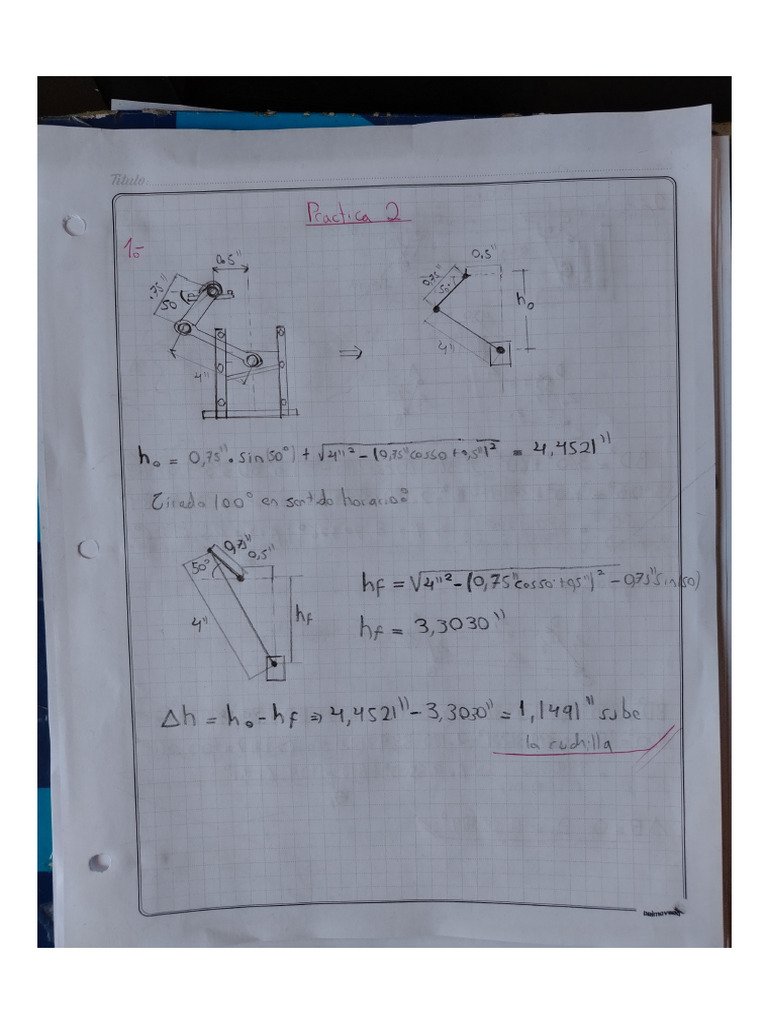 Titulo:
Practica 2
1.-
0.5"
.75"
50
4"
⇒
0.5"
0.75"
50°
h₀
4"
h₀ = 0,75"・sin(50°) + √4"² - (0,75"cos50 + 0,5")² = 4,4521"
Girado 100° en sentido horario:
0,75"
0,5"
50°
4"
hf
hf = √4"² - (0,75"cos50 + 0,5")² - 0,75"sin(50)
hf = 3,3030"
Δh = h₀ - hf ⇒ 4,4521" - 3,3030" = 1,1491" sube
la cuchilla